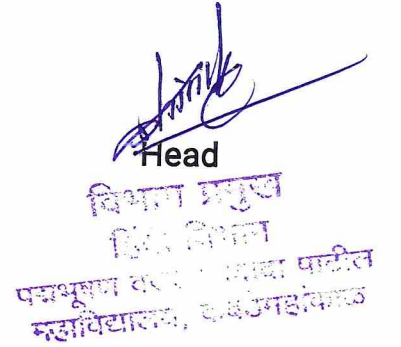 Head
विभाग प्रमुख
हिंदी विभाग
पद्मभूषण वसंतदादा पाटील
महाविद्यालय, कवठेमहांकाळ